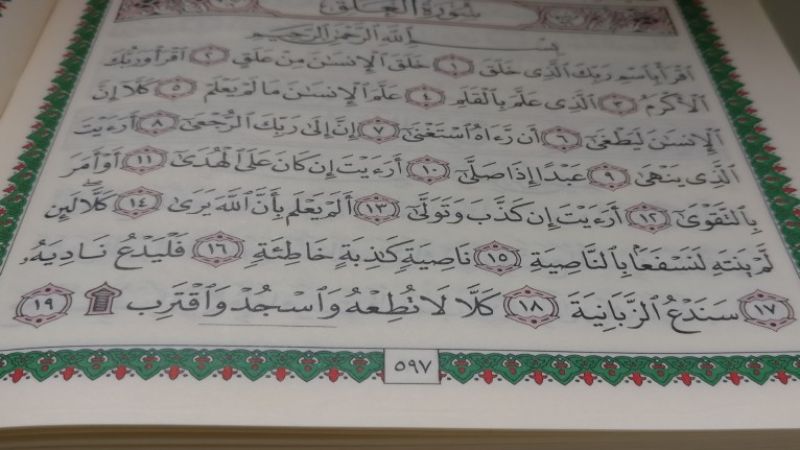 سُورَةُ العَلَقِ
بِسْمِ ٱللَّهِ ٱلرَّحْمَٰنِ ٱلرَّحِيمِ
ٱقْرَأْ بِٱسْمِ رَبِّكَ ٱلَّذِى خَلَقَ ١ خَلَقَ ٱلْإِنسَٰنَ مِنْ عَلَقٍ ٢ ٱقْرَأْ وَرَبُّكَ
ٱلْأَكْرَمُ ٣ ٱلَّذِى عَلَّمَ بِٱلْقَلَمِ ٤ عَلَّمَ ٱلْإِنسَٰنَ مَا لَمْ يَعْلَمْ ٥ كَلَّآ إِنَّ
ٱلْإِنسَٰنَ لَيَطْغَىٰٓ ٦ أَن رَّءَاهُ ٱسْتَغْنَىٰٓ ٧ إِنَّ إِلَىٰ رَبِّكَ ٱلرُّجْعَىٰٓ ٨ أَرَءَيْتَ
ٱلَّذِى يَنْهَىٰ ٩ عَبْدًا إِذَا صَلَّىٰٓ ١٠ أَرَءَيْتَ إِن كَانَ عَلَى ٱلْهُدَىٰٓ ١١ أَوْ أَمَرَ
بِٱلتَّقْوَىٰٓ ١٢ أَرَءَيْتَ إِن كَذَّبَ وَتَوَلَّىٰٓ ١٣ أَلَمْ يَعْلَم بِأَنَّ ٱللَّهَ يَرَىٰ ١٤ كَلَّا لَئِن
لَّمْ يَنتَهِ لَنَسْفَعًۢا بِٱلنَّاصِيَةِ ١٥ نَاصِيَةٍ كَٰذِبَةٍ خَاطِئَةٍ ١٦ فَلْيَدْعُ نَادِيَهُۥ
١٧ سَنَدْعُ ٱلزَّبَانِيَةَ ١٨ كَلَّا لَا تُطِعْهُ وَٱسْجُدْ وَٱقْتَرِب ۩ ١٩
٥٩٧